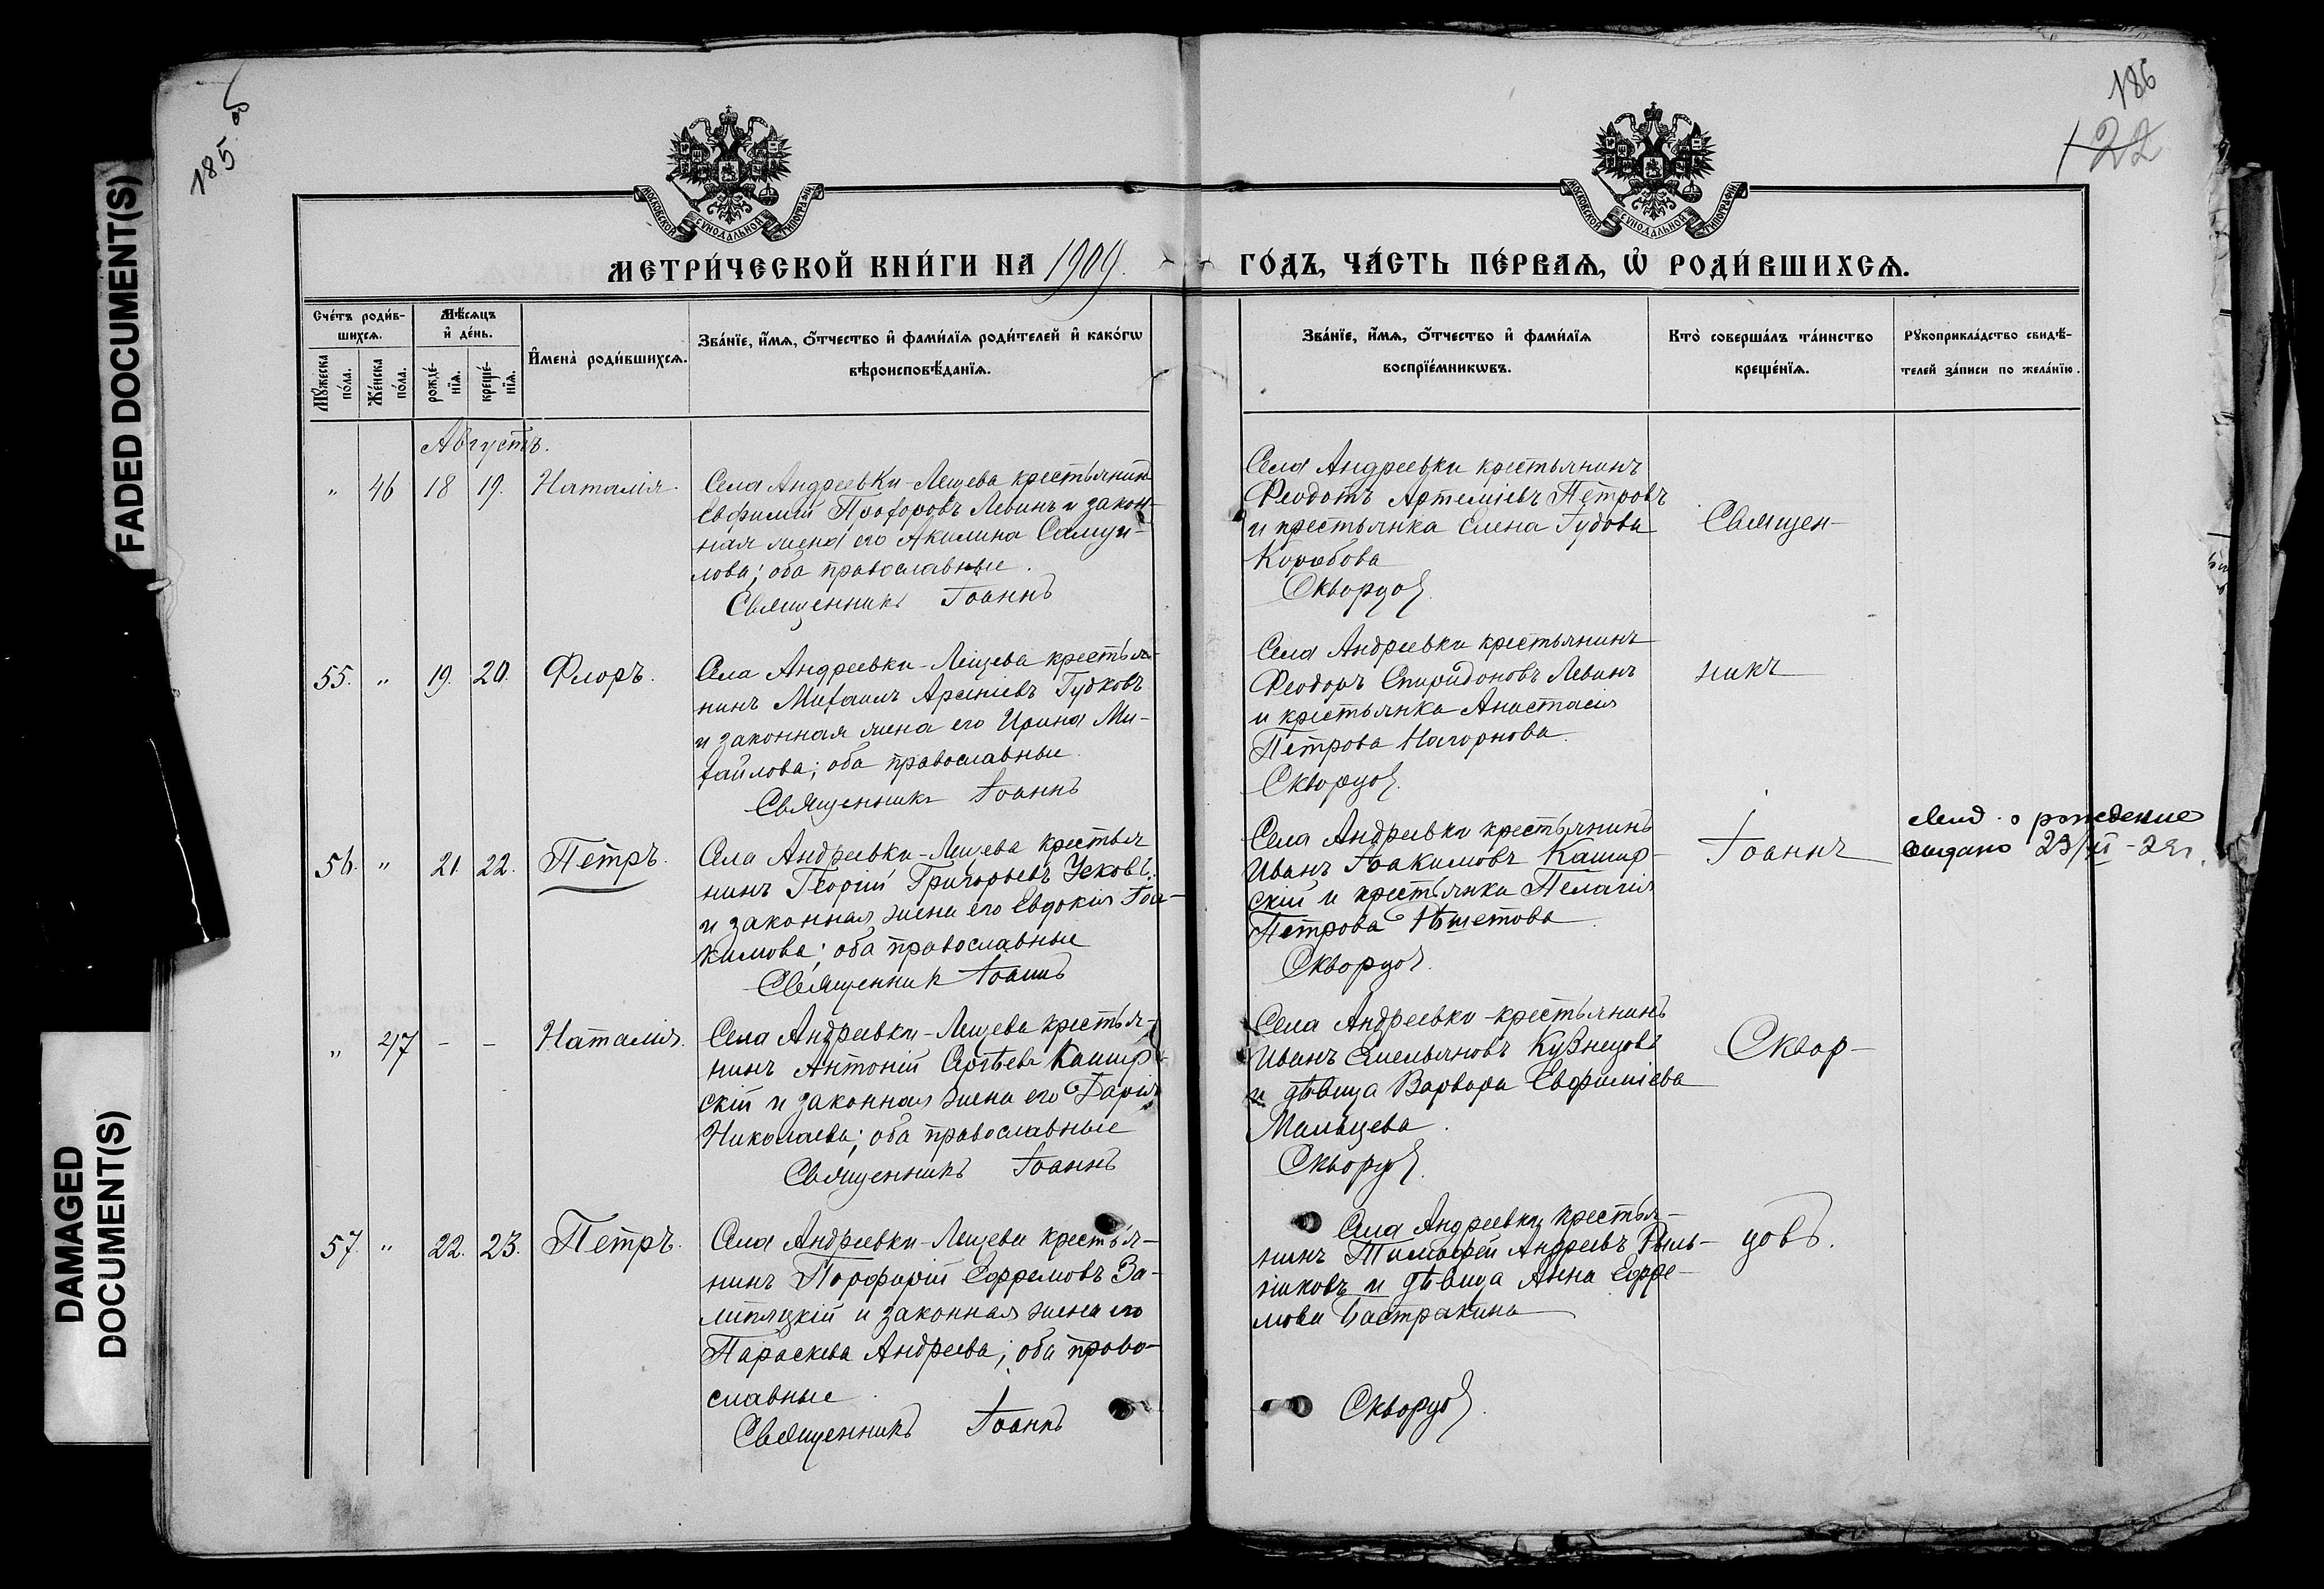 FADED DOCUMENT(S)
DAMAGED
DOCUMENT(S)
185 об
186
122
МОСКОВСКОЙ СѴНОДАЛЬНОЙ ТИПОГРАФІИ
МОСКОВСКОЙ СѴНОДАЛЬНОЙ ТИПОГРАФІИ
МЕТРИ́ЧЕСКОЙ КНИ́ГИ НА 1909.
ГО́ДЪ, ЧА́СТЬ ПЕ́РВАѦ, Ѡ҆ РОДИ́ВШИХСѦ.
Сче́тъ роди́в-
шихсѧ.
Мꙋ́жеска
по́ла.
Же́нска
по́ла.
Мѣ́сѧцъ
и҆ де́нь.
рожде́-
нїѧ.
креще́-
нїѧ.
И҆мена̀ роди́вшихсѧ.
Зва́нїе, и҆́мѧ, ѻ҆́тчество и҆ фами́лїѧ роди́телей и҆ како́гѡ
вѣроисповѣ́данїѧ.
Зва́нїе, и҆́мѧ, ѻ҆́тчество и҆ фами́лїѧ
воспрїе́мникѡвъ.
Кто̀ соверша́лъ та́инство
креще́нїѧ.
Рꙋкоприкла́дство свидѣ́-
телей за́писи по жела́нїю.
Августъ.
" 46 18 19. Наталія.
Села Андреевки-Лещева крестьянинъ
Евфимій Прохоровъ Левинъ и закон-
ная жена его Акилина Самуи-
лова; оба православные.
Священникъ Іоаннъ
Села Андреевки крестьянинъ
Феодотъ Артеміевъ Петровъ
и крестьянка Елена
Коробова
Скворцовъ.
Священ-
55. " 19. 20. Флоръ.
Села Андреевки-Лещева крестья-
нинъ Михаилъ Арсеніевъ Гудковъ
и законная жена его Ирина Ми-
хайлова; оба православные.
Священникъ Іоаннъ
Села Андреевки крестьянинъ
Феодоръ Спиридоновъ Левинъ
и крестьянка Анастасія
Петрова Нагорнова.
Скворцовъ.
никъ
56. " 21. 22. Петръ.
Села Андреевки-Лещева крестья
нинъ Георгій Григорьевъ Усковъ
и законная жена его Евдокія Іоа-
кимова; оба православные
Священникъ Іоаннъ
Села Андреевки крестьянинъ
Иванъ Іоакимовъ Кашир-
скій и крестьянка Пелагія
Петрова
Скворцовъ.
Іоаннъ
о рождение
выдано 23/XI - 29г.
" 47 - - Наталія.
Села Андреевки-Лещева крестья-
нинъ Антоній Сергѣевъ Кашир
скій и законная жена его Дарія
Николаева; оба православные
Священникъ Іоаннъ
Села Андреевки крестьянинъ
Иванъ Емельяновъ Кузнецовъ
и дѣвица Варвара Евфиміева
Мальцева.
Скворцовъ.
Сквор-
57. " 22. 23. Петръ.
Села Андреевки-Лещева крестья-
нинъ Порфирій Ефремовъ За-
липяцкій и законная жена его
Параскева Андреева; оба право-
славные.
Священникъ Іоаннъ
Села Андреевки крестья-
нинъ Тимофей Андреевъ Рыль-
щиковъ и дѣвица Анна Ефре-
мова Бастракина
Скворцовъ.
цовъ.